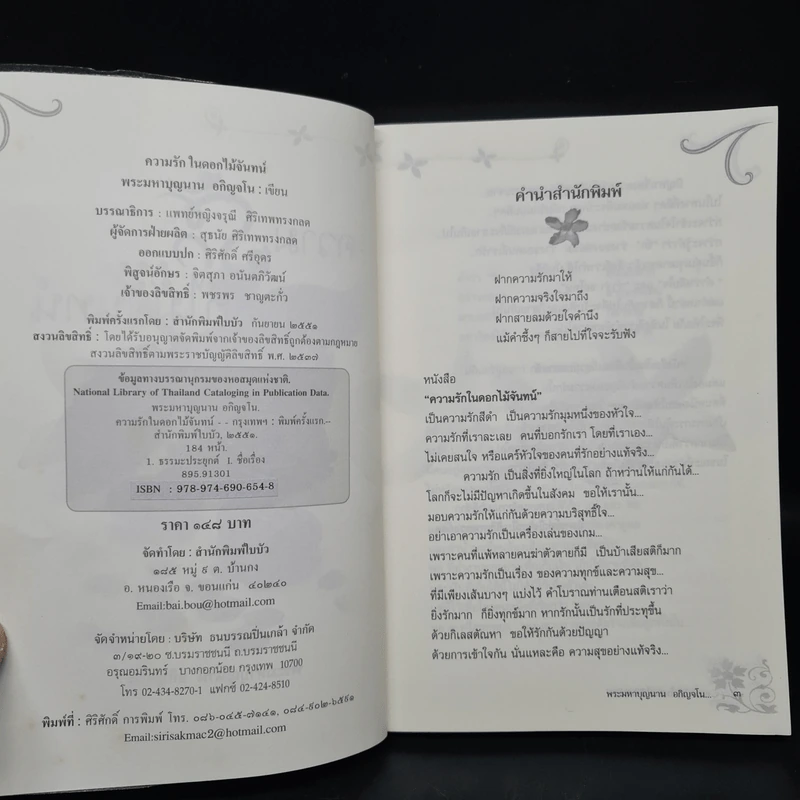 ความรัก ในดอกไม้จันทน์
พระมหาบุญนาน อกิญจโน : เขียน
บรรณาธิการ : แพทย์หญิงจรุณี ศิริเทพทรงกลด
ผู้จัดการฝ่ายผลิต : สุธนัย ศิริเทพทรงกลด
ออกแบบปก : ศิริศักดิ์ ศรีอุดร
พิสูจน์อักษร : จิตสุภา อนันตภิวัฒน์
เจ้าของลิขสิทธิ์ : พชรพร ชาญตะกั่ว
พิมพ์ครั้งแรกโดย : สำนักพิมพ์ใบบัว กันยายน ๒๕๕๑
สงวนลิขสิทธิ์ : โดยได้รับอนุญาตจัดพิมพ์จากเจ้าของลิขสิทธิ์ถูกต้องตามกฎหมาย
สงวนลิขสิทธิ์ตามพระราชบัญญัติลิขสิทธิ์ พ.ศ. ๒๕๓๗
ข้อมูลทางบรรณานุกรมของหอสมุดแห่งชาติ.
National Library of Thailand Cataloging in Publication Data.
พระมหาบุญนาน อกิญจโน.
ความรักในดอกไม้จันทน์ - - กรุงเทพฯ : พิมพ์ครั้งแรก.--
สำนักพิมพ์ใบบัว, ๒๕๕๑.
184 หน้า.
1. ธรรมะประยุกต์ I. ชื่อเรื่อง
895.91301
ISBN : 978-974-690-654-8
ราคา ๑๔๘ บาท
จัดทำโดย : สำนักพิมพ์ใบบัว
๑๘๕ หมู่ ๙ ต. บ้านกง
อ. หนองเรือ จ. ขอนแก่น ๔๐๒๔๐
Email:bai.bou@hotmail.com
จัดจำหน่ายโดย : บริษัท ธนบรรณปิ่นเกล้า จำกัด
๓/๑๙-๒๐ ซ.บรมราชชนนี ถ.บรมราชชนนี
อรุณอมรินทร์ บางกอกน้อย กรุงเทพ 10700
โทร 02-434-8270-1 แฟกซ์ 02-424-8510
พิมพ์ที่ : ศิริศักดิ์ การพิมพ์ โทร. ๐๘๖-๐๔๕-๗๑๔๑, ๐๘๔-๙๐๒-๖๕๙๑
Email:sirisakmac2@hotmail.com
คำนำสำนักพิมพ์
ฝากความรักมาให้
ฝากความจริงใจมาถึง
ฝากสายลมด้วยใจคำนึง
แม้คำซึ้งๆ ก็สายไปที่ใจจะรับฟัง
หนังสือ
"ความรักในดอกไม้จันทน์"
เป็นความรักสีดำ เป็นความรักมุมหนึ่งของหัวใจ...
ความรักที่เราละเลย คนที่บอกรักเรา โดยที่เราเอง...
ไม่เคยสนใจ หรือแคร์หัวใจของคนที่รักอย่างแท้จริง...
ความรัก เป็นสิ่งที่ยิ่งใหญ่ในโลก ถ้าหว่านให้แก่กันได้...
โลกก็จะไม่มีปัญหาเกิดขึ้นในสังคม ขอให้เรานั้น...
มอบความรักให้แก่กันด้วยความบริสุทธิ์ใจ...
อย่าเอาความรักเป็นเครื่องเล่นของเกม...
เพราะคนที่แพ้หลายคนฆ่าตัวตายก็มี เป็นบ้าเสียสติก็มาก
เพราะความรักเป็นเรื่อง ของความทุกข์และความสุข...
ที่มีเพียงเส้นบางๆ แบ่งไว้ คำโบราณท่านเตือนสติเราว่า
ยิ่งรักมาก ก็ยิ่งทุกข์มาก หากรักนั้นเป็นรักที่ประทุขึ้น
ด้วยกิเลสตัณหา ขอให้รักกันด้วยปัญญา
ด้วยการเข้าใจกัน นั่นแหละคือ ความสุขอย่างแท้จริง...
พระมหาบุญนาน อกิญจโน... ๓